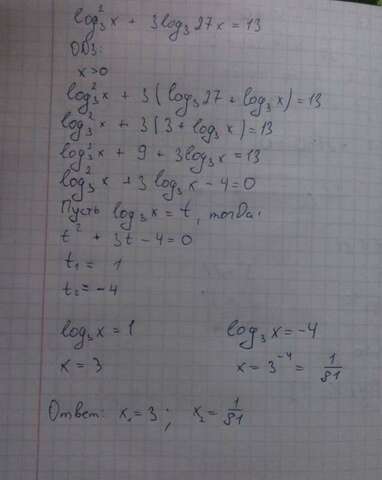 log₃²x + 3log₃27x = 13
ОДЗ:
x>0
log₃²x + 3(log₃27 + log₃x) = 13
log₃²x + 3(3 + log₃x) = 13
log₃²x + 9 + 3log₃x = 13
log₃²x + 3log₃x - 4 = 0
Пусть log₃x = t, тогда:
t² + 3t - 4 = 0
t₁ = 1
t₂ = -4
log₃x = 1 log₃x = -4
x = 3 x = 3⁻⁴ = 1/81
Ответ: x₁ = 3; x₂ = 1/81